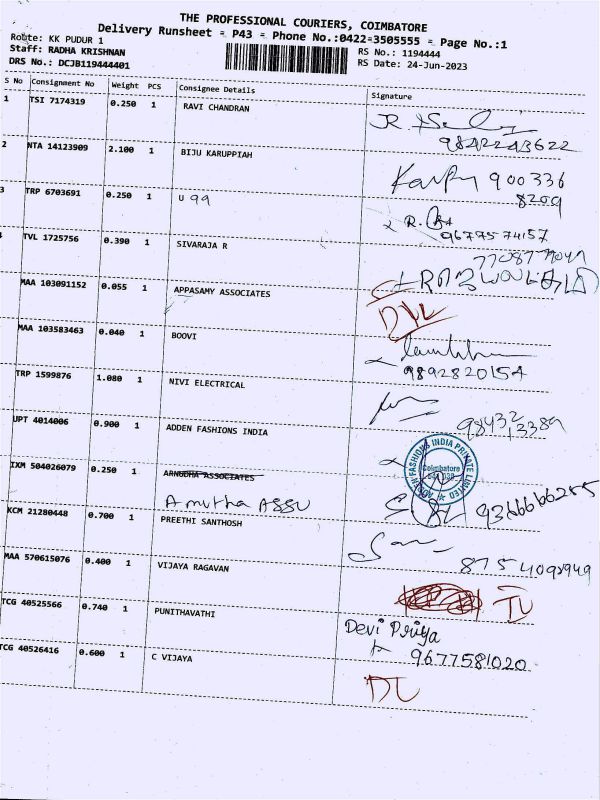 THE PROFESSIONAL COURIERS, COIMBATORE
Delivery Runsheet - P43 - Phone No.:0422-3505555 - Page No.:1
Route: KK PUDUR 1 RS No.: 1194444
Staff: RADHA KRISHNAN RS Date: 24-Jun-2023
DRS No.: DCJB119444401
S No Consignment No Weight PCS Consignee Details Signature
1 TSI 7174319 0.250 1 RAVI CHANDRAN
2 NTA 14123909 2.100 1 BIJU KARUPPIAH
900336
8209
3 TRP 6703691 0.250 1 U 99
R.
9677574157
TVL 1725756 0.390 1 SIVARAJA R
MAA 103091152 0.055 1 APPASAMY ASSOCIATES
MAA 103583463 0.040 1 BOOVI
9892820154
TRP 1599876 1.080 1 NIVI ELECTRICAL
98432
13389
UPT 4014006 0.900 1 ADDEN FASHIONS INDIA
ADDEN FASHIONS INDIA PRIVATE LIMITED
Coimbatore
IXM 504026079 0.250 1 ARNODHA ASSOCIATES
Amutha Assu
KCM 21280448 0.700 1 PREETHI SANTHOSH
MAA 570615076 0.400 1 VIJAYA RAGAVAN
TCG 40525566 0.740 1 PUNITHAVATHI
Devi Priya
9677581020
TCG 40526416 0.600 1 C VIJAYA
DL